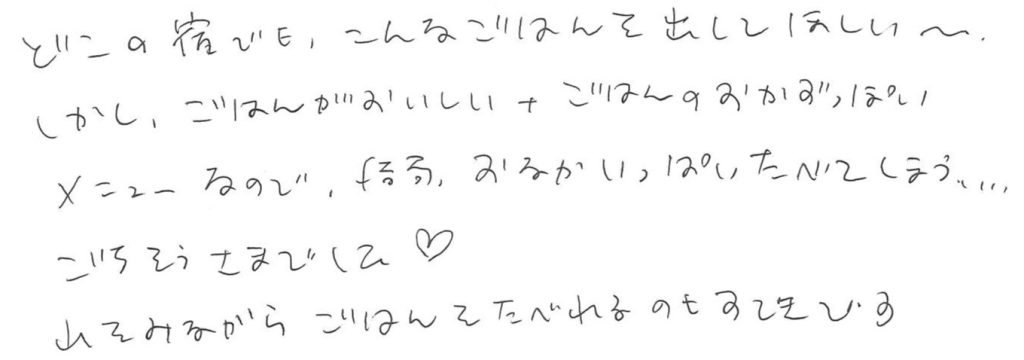 どこの宿でも、こんなごはんを出してほしい〜。
しかし、ごはんがおいしい+ごはんのおかずっぽい
メニューなので、結局、おなかいっぱいたべてしまう、、、、
ごちそうさまでした♡
山をみながらごはんをたべれるのもすてきです